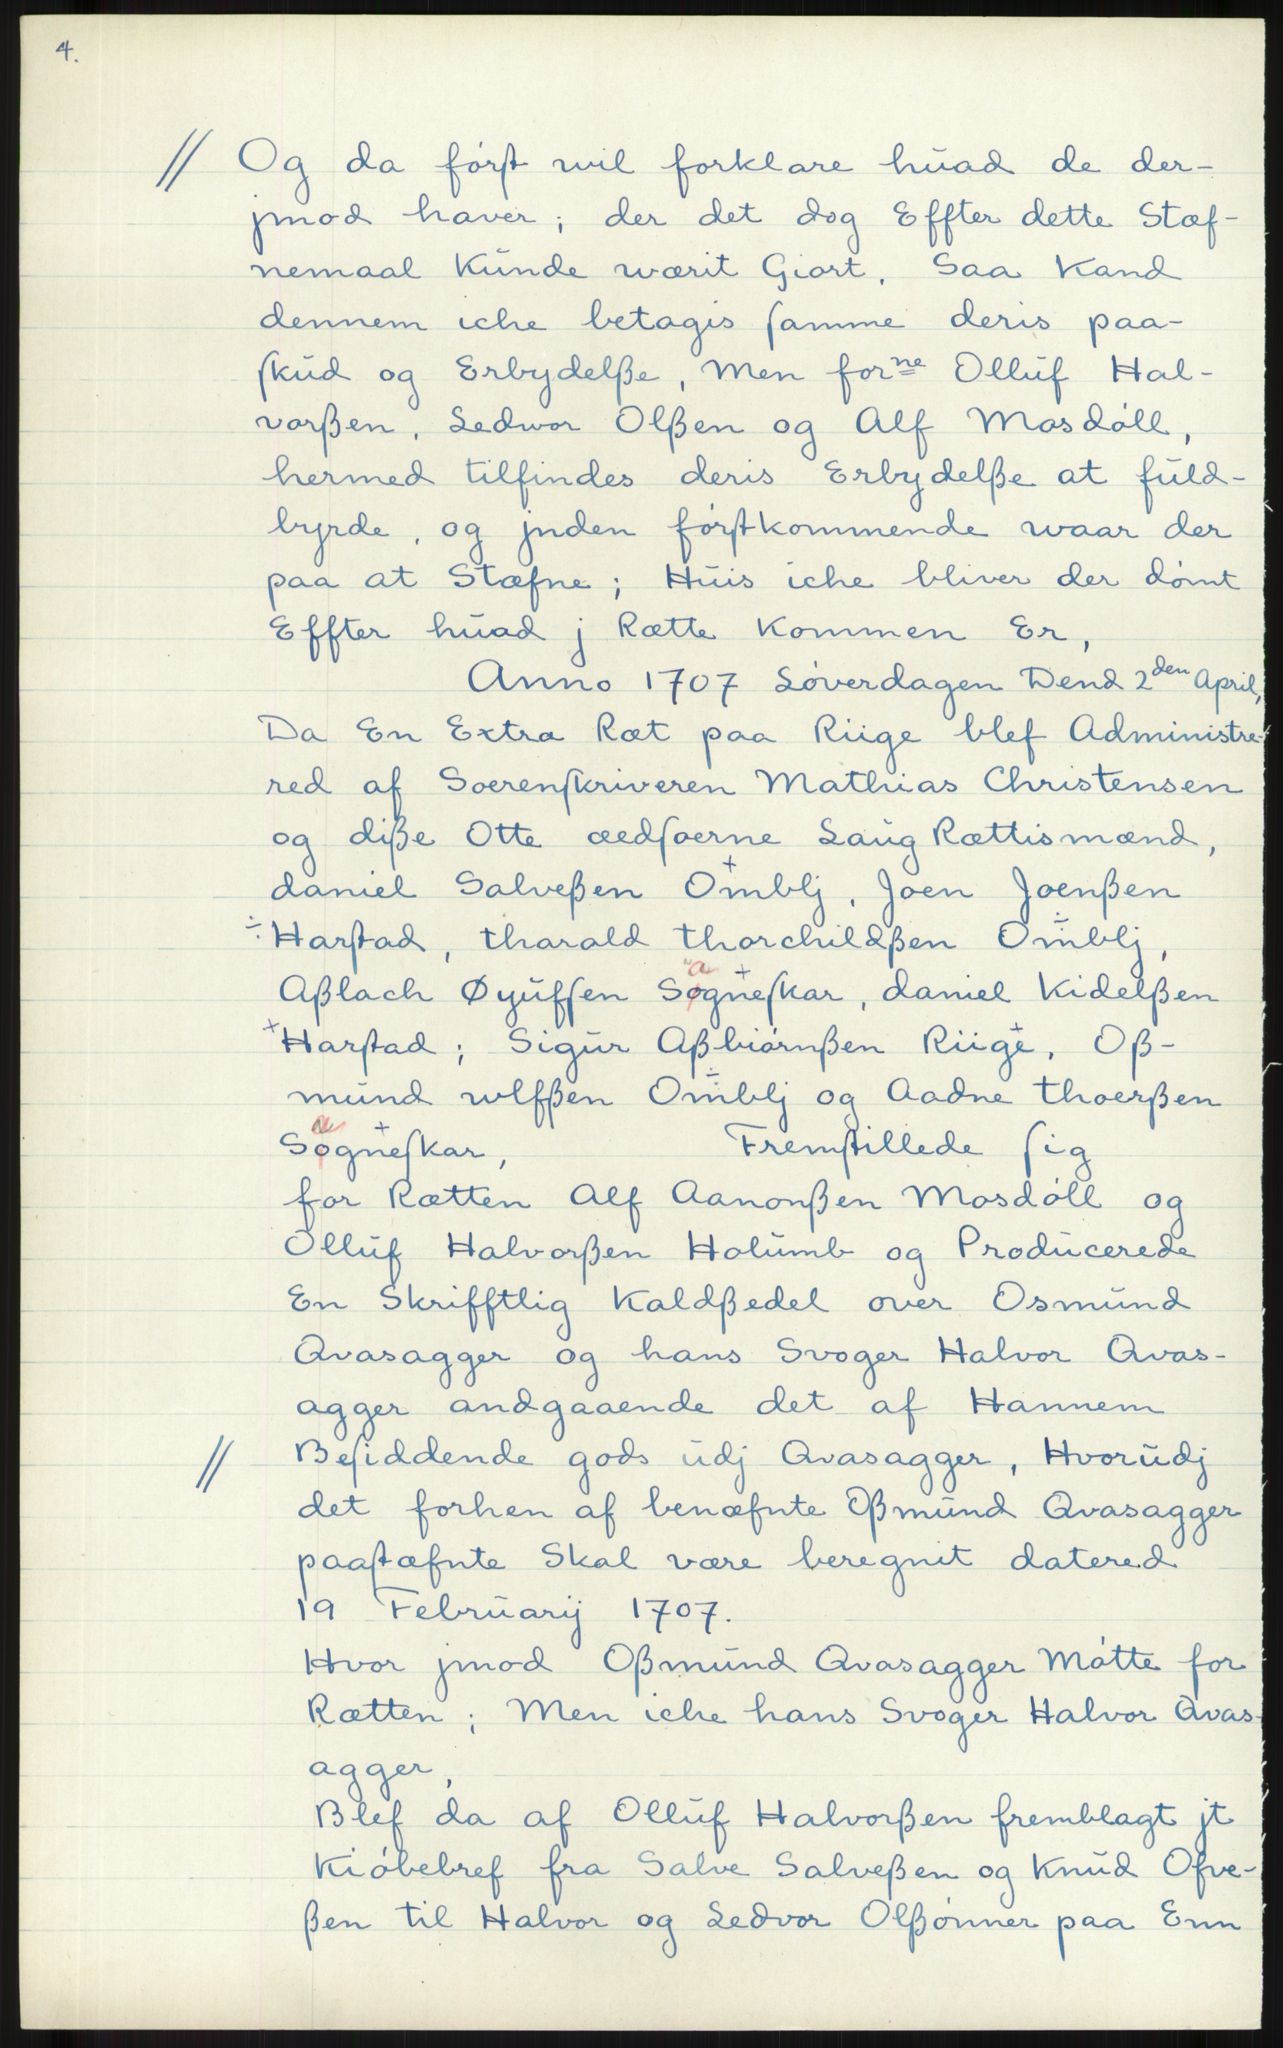 4.
// Og da først wil forklare huad de der-
jmod haver; der det dog Effter dette Stæf-
nemaal Kunde wærit Giort. Saa Kand
dennem iche betagis samme deris paa-
skud og Erbydelße, Men forne Olluf Hal-
vorßen, Ledwor Olßen og Alf Mosdøll,
hermed tilfindes deris Erbydelße at fuld-
byrde, og jnden førstkommende waar der
paa at Stæfne; Huis iche bliver der dømt
Effter huad j Rætte Kommen Er,
Anno 1707 Løverdagen Dend 2den April,
Da En Extra Ræt paa Riige blef Administre-
red af Soerenskriveren Mathias Christensen
og diße Otte ædsoerne Laug Rættismænd,
daniel Salveßen Omblj, Joen Joenßen
÷ Harstad, tharald thorchildßen Omblj,
Aßlach Øyufsen Sogneskar, daniel Kidelßen
+ Harstad; Sigur Aßbiørnßen Riige, Oß-
mund wlfßen Omblj og Aadne thoerßen
Sogneskar, Fremstillede sig
for Rætten Alf Aanonßen Mosdøll og
Olluf Halvorßen Holumb og Producerede
En Skrifftlig Kaldßedel over Osmund
Qvasagger og hans Svoger Halvor Qvas-
agger andgaaende det af Hannem
// Besiddende gods udj Qvasagger, Hvorudj
det forhen af benæfnte Oßmund Qvasagger
paastæfnte Skal være beregnit datered
19 Februarij 1707.
Hvor jmod Oßmund Qvasagger Møtte for
Rætten; Men iche hans Svoger Halvor Qvas-
agger,
Blef da af Olluf Halvorßen fremblagt jt
Kiøbebref fra Salve Salveßen og Knud Ofve-
ßen til Halvor og Ledvor Olßønner paa Enn